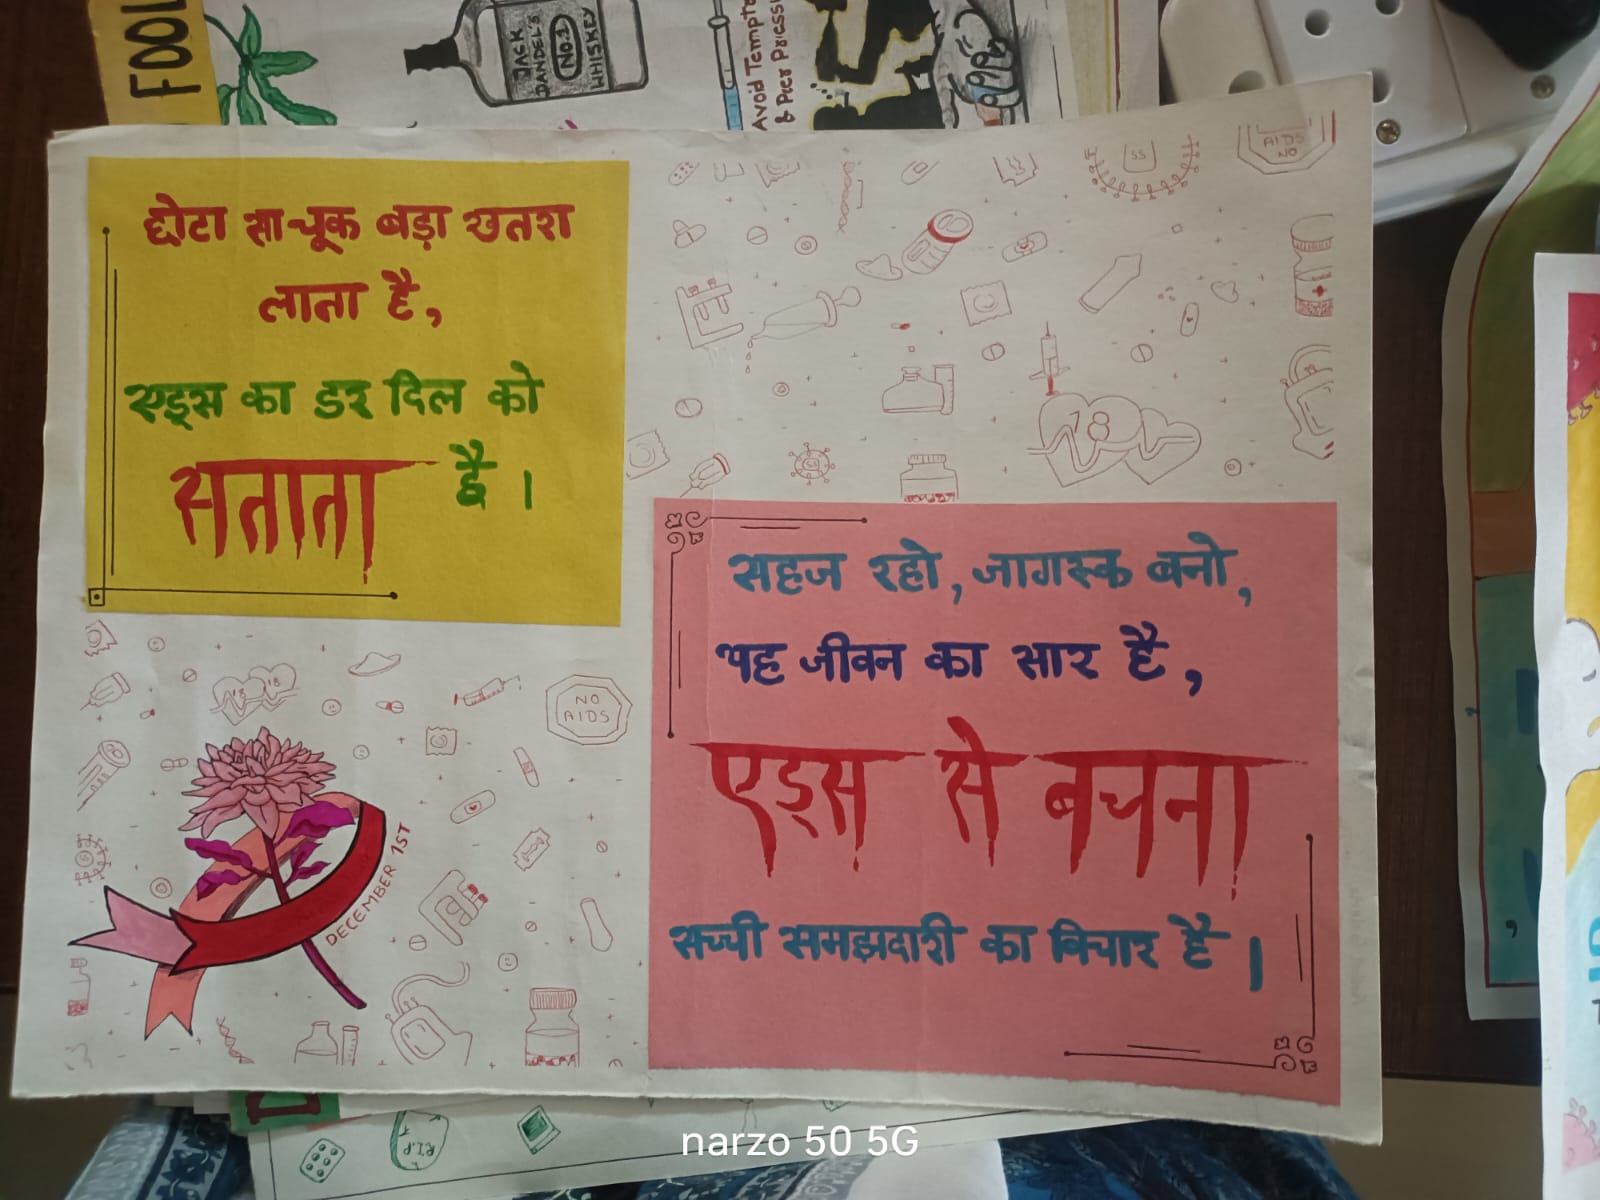 FOOL
JACK
DANDEL'S
NO.1
WHISKEY
Avoid
& Peer
SS
AIDS
NO
छोटा सा चूक बड़ा खतरा
लाता है,
एड्स का डर दिल को
सताता है।
18
SS
सहज रहो, जागरूक बनो,
यह जीवन का सार है,
एड्स से बचना
सच्ची समझदारी का विचार है।
NO
AIDS
DECEMBER 1ST
R.I.P
narzo 50 5G